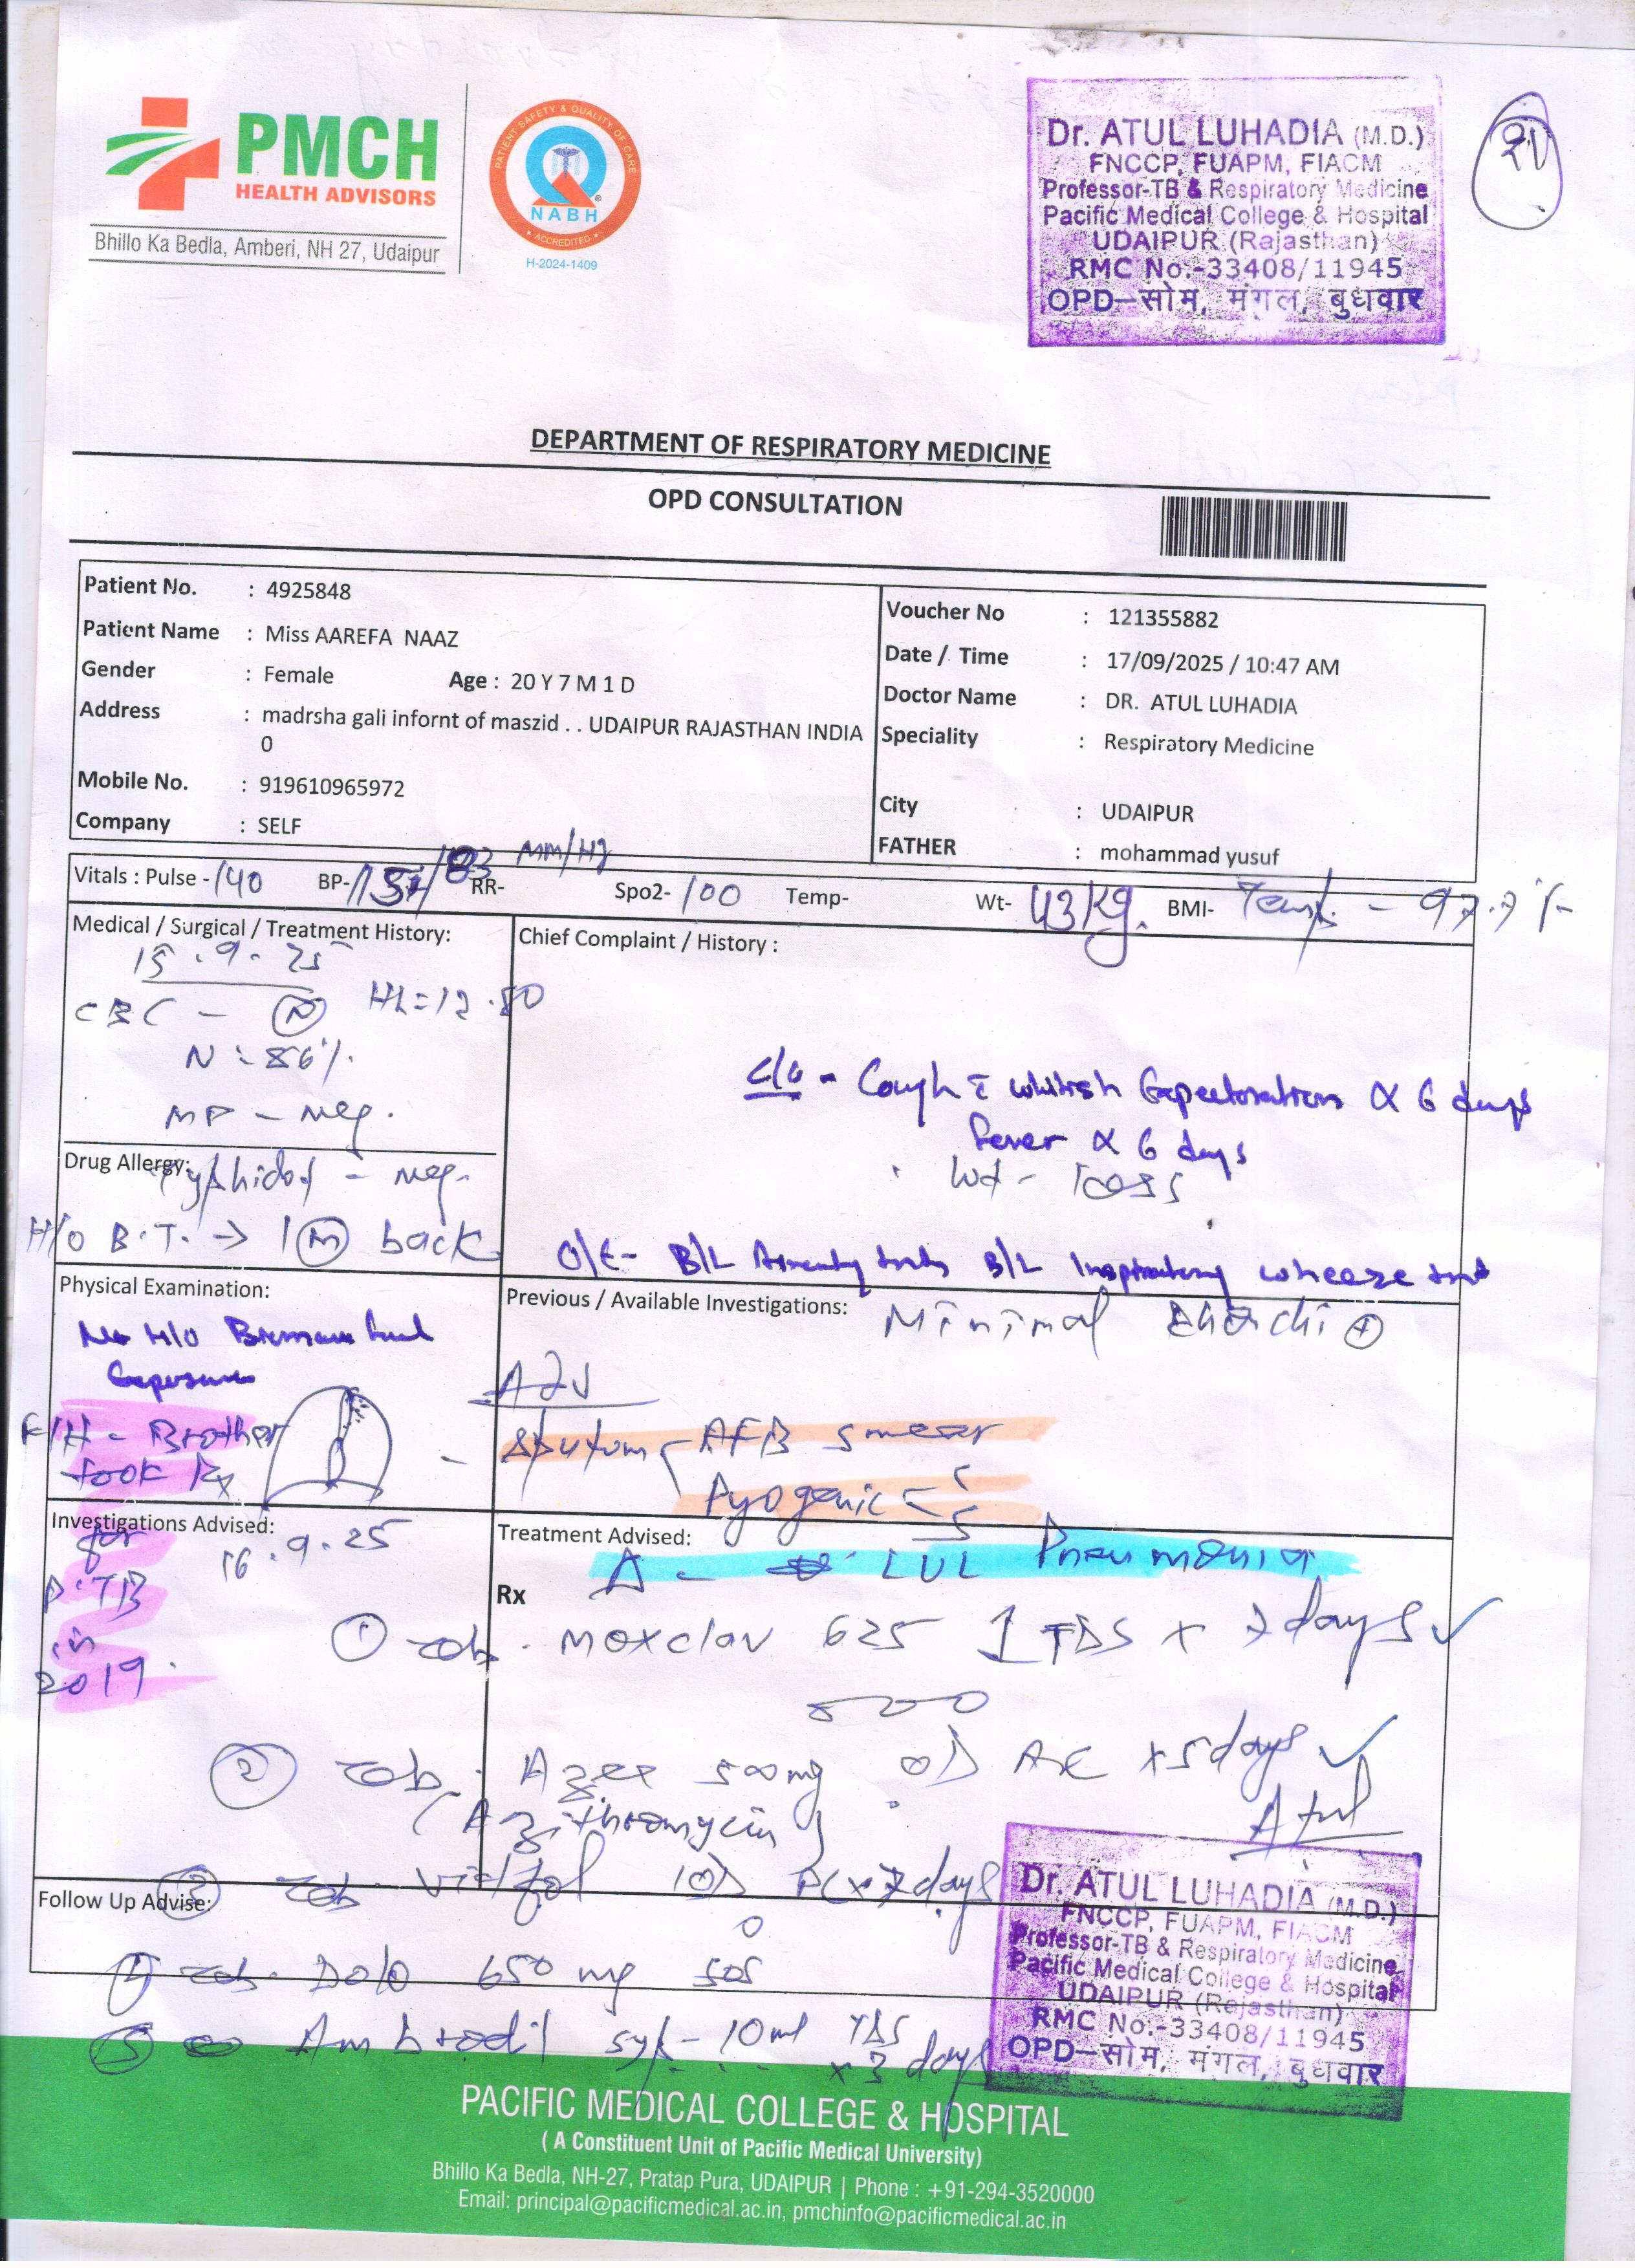 PMCH
HEALTH ADVISORS
Bhillo Ka Bedla, Amberi, NH 27, Udaipur
PATIENT SAFETY & QUALITY OF CARE
NABH
ACCREDITED
H-2024-1409
Dr. ATUL LUHADIA (M.D.)
FNCCP, FUAPM, FIACM
Professor-TB & Respiratory Medicine
Pacific Medical College & Hospital
UDAIPUR (Rajasthan)
RMC No.-33408/11945
OPD–सोम, मंगल, बुधवार
DEPARTMENT OF RESPIRATORY MEDICINE
OPD CONSULTATION
Patient No. : 4925848
Patient Name : Miss AAREFA NAAZ
Gender : Female Age : 20 Y 7 M 1 D
Address : madrsha gali infornt of maszid . . UDAIPUR RAJASTHAN INDIA
0
Mobile No. : 919610965972
Company : SELF
Voucher No : 121355882
Date / Time : 17/09/2025 / 10:47 AM
Doctor Name : DR. ATUL LUHADIA
Speciality : Respiratory Medicine
City : UDAIPUR
FATHER : mohammad yusuf
Vitals : Pulse - 140 BP- /83 mm/Hg RR- Spo2- 100 Temp- Wt- 43 kg. BMI- Temp. - 97.7
Medical / Surgical / Treatment History:
15.9.25
CBC - (N) Hb = 12.80
N = 86%
MP - neg.
Drug Allergy:
Typhidot - neg.
H/O B.T. → 1 (m) back
Chief Complaint / History :
C/O - Cough c̄ whitish Expectoration × 6 days
Fever × 6 days
Wt - loss
O/E - B/L Airentry B/L Inspiratory wheeze
Physical Examination:
No H/O Biomass fuel
Exposure
F/H - Brother
took Rx
for
P.TB
in
2019.
Previous / Available Investigations:
Minimal Rhonchi +
Adv
Sputum - AFB smear
Pyogenic C/S
Investigations Advised:
16.9.25
Treatment Advised:
Δ - LUL Pneumonia
Rx
① Tab. Moxclav 625 1 TDS × 7 days
② Tab. Azee 500 mg OD AC × 5 days
(Azithromycin)
Atul
③ Tab. 1 OD PC × 7 days
Follow Up Advise:
④ Tab. Dolo 650 mg SOS
⑤ Ambrodil syp - 10 ml TDS
× 3 days
Dr. ATUL LUHADIA (M.D.)
FNCCP, FUAPM, FIACM
Professor-TB & Respiratory Medicine
Pacific Medical College & Hospital
UDAIPUR (Rajasthan)
RMC No.-33408/11945
OPD–सोम, मंगल, बुधवार
PACIFIC MEDICAL COLLEGE & HOSPITAL
( A Constituent Unit of Pacific Medical University)
Bhillo Ka Bedla, NH-27, Pratap Pura, UDAIPUR | Phone : +91-294-3520000
Email: principal@pacificmedical.ac.in, pmchinfo@pacificmedical.ac.in